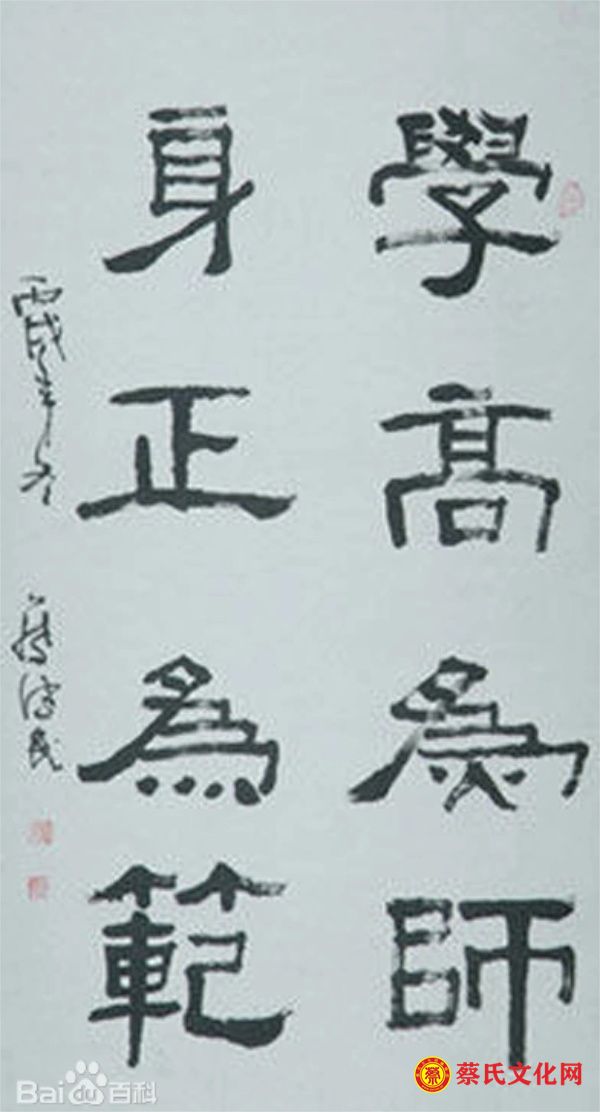 學高為師
身正為範
丙戌年冬
Bai百科
蔡氏文化网